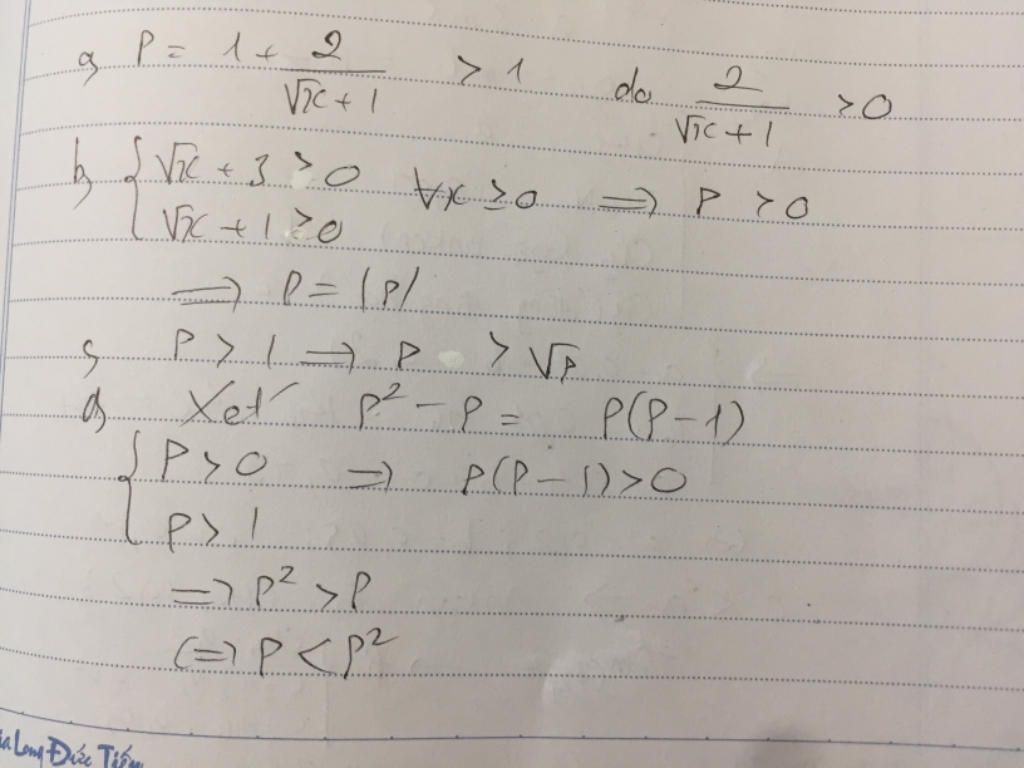 a) P = 1 + 2/(√x + 1) > 1 do 2/(√x + 1) > 0
b) { √x + 3 > 0
√x + 1 > 0 ∀x ≥ 0 ⟹ P > 0
⟹ P = |P|
c) P > 1 ⟹ P > √P
d) Xét P² - P = P(P - 1)
{ P > 0 ⟹ P(P - 1) > 0
P > 1
⟹ P² > P
⟺ P < P²
Long Đức Tiến